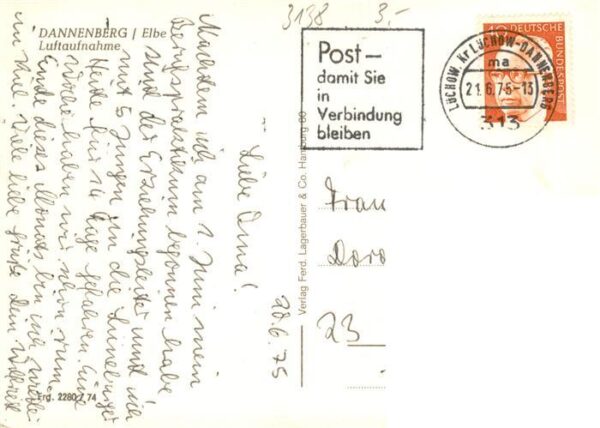 DANNENBERG / Elbe
Luftaufnahme
3138
3.-
Post -
damit Sie
in
Verbindung
bleiben
LÜCHOW, Kr LÜCHOW-DANNENBERG
ma
21.6.75-13
313
DEUTSCHE
BUNDESPOST
20.6.75
Liebe Anna!
Nachdem ich am 1. Juni mein
Berufspraktikum begonnen habe
sind der Erziehungsleiter und wir
mit 5 Jungen in die Lüneburger
Heide für 14 Tage gefahren. Eine
Woche haben wir schon rum.
Ende dieses Monats bin ich wieder
in Kiel. Viele liebe Grüße Dein
Frau
Doro
23
Verlag Ferd. Lagerbauer & Co. Hamburg 60
Frg. 2280 / 74